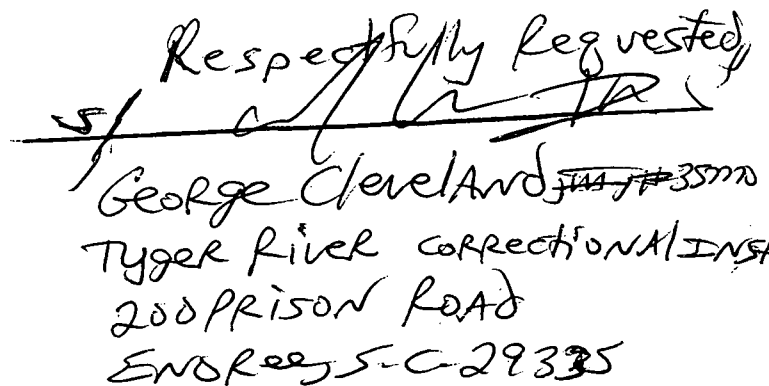 Respectfully Requested,
S/
George Cleveland,
Tyger River CORRectiONAl INST
200 PRISON ROAD
ENORee, S-C- 29335